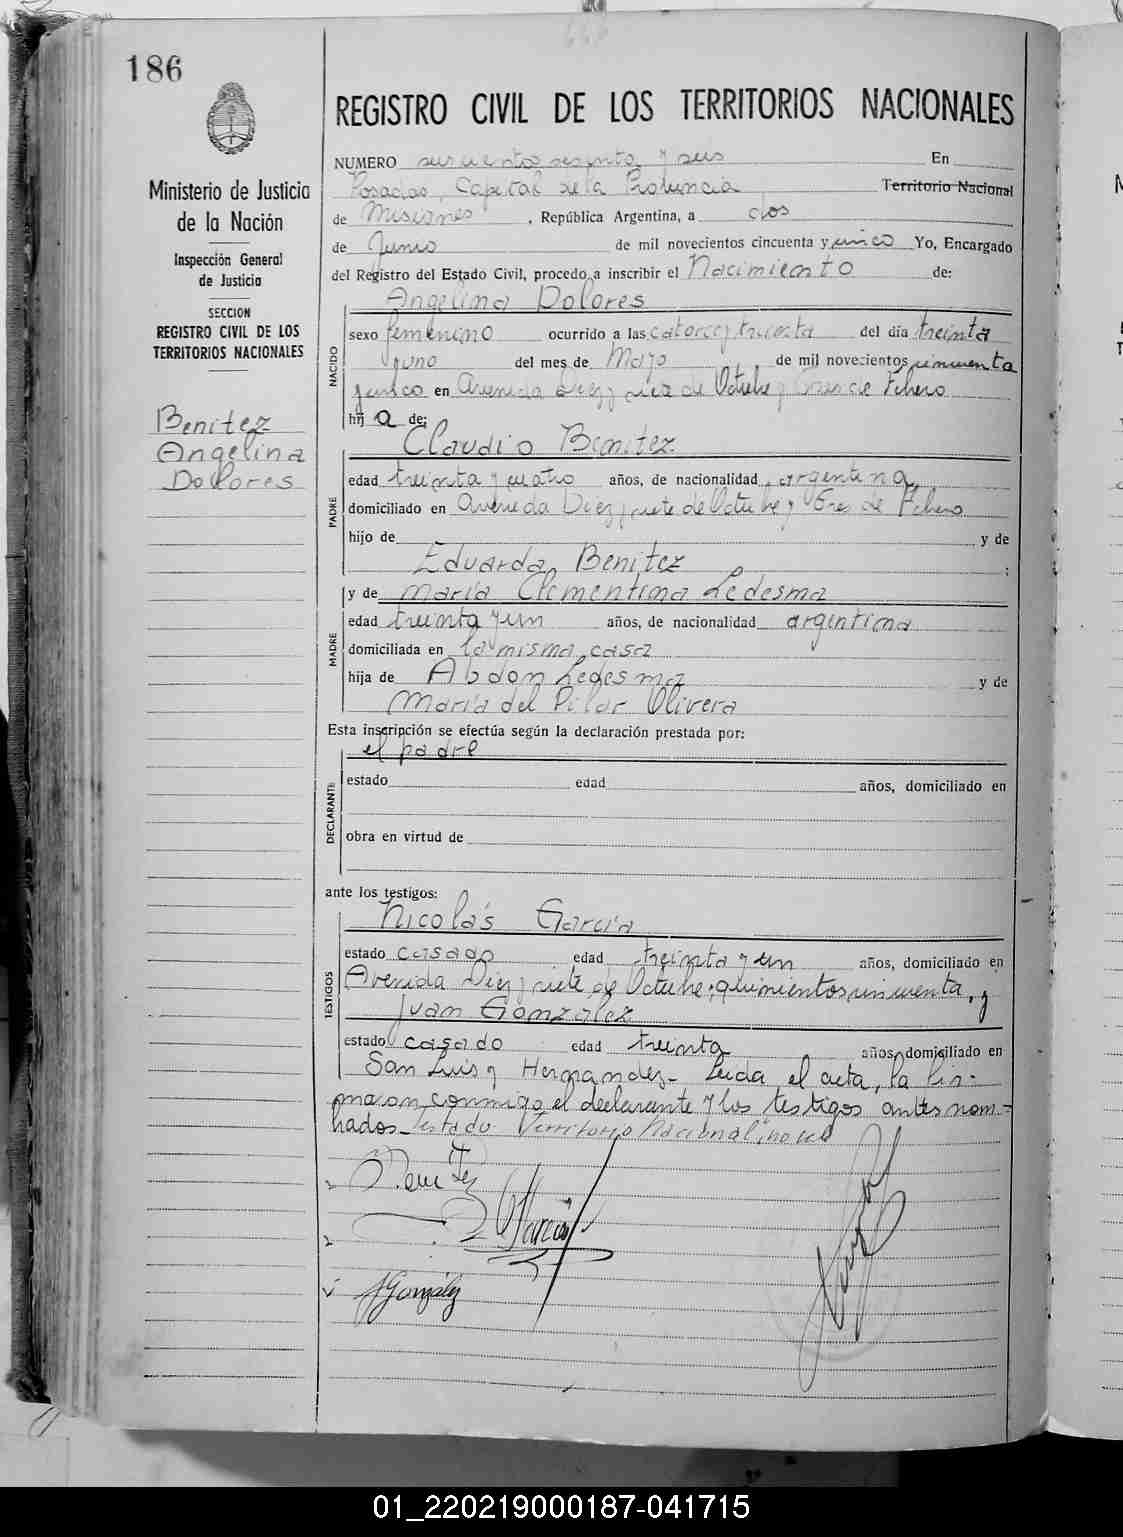 186
Ministerio de Justicia
de la Nación
Inspección General
de Justicia
SECCION
REGISTRO CIVIL DE LOS
TERRITORIOS NACIONALES
Benitez
Angelina
Dolores
REGISTRO CIVIL DE LOS TERRITORIOS NACIONALES
NUMERO seiscientos sesenta y seis En
Posadas, Capital de la Provincia Territorio Nacional
de Misiones, República Argentina, a dos
de Junio de mil novecientos cincuenta y cinco Yo, Encargado
del Registro del Estado Civil, procedo a inscribir el Nacimiento de:
NACIDO
Angelina Dolores
sexo femenino ocurrido a las catorce y treinta del día treinta
y uno del mes de Mayo de mil novecientos cincuenta
y cinco en Avenida Diez y siete de Octubre y Tres de Febrero
hija de:
PADRE
Claudio Benitez
edad treinta y cuatro años, de nacionalidad argentina,
domiciliado en Avenida Diez y siete de Octubre y Tres de Febrero
hijo de y de
Eduarda Benitez ;
MADRE
y de María Clementina Ledesma
edad treinta y un años, de nacionalidad argentina
domiciliada en la misma casa
hija de Abdon Ledesma y de
María del Pilar Olivera
Esta inscripción se efectúa según la declaración prestada por:
DECLARANTE
el padre
estado edad años, domiciliado en
obra en virtud de
ante los testigos:
TESTIGOS
Nicolás García
estado casado edad treinta y un años, domiciliado en
Avenida Diez y siete de Octubre, quinientos cincuenta, y
Juan Gonzalez
estado casado edad treinta años, domiciliado en
San Luis y Hernandez - Leida el acta, la fir-
maron conmigo el declarante y los testigos antes nom-
brados - Testado Territorio Nacional, no vale
Benitez
García
JGonzález
01_220219000187-041715